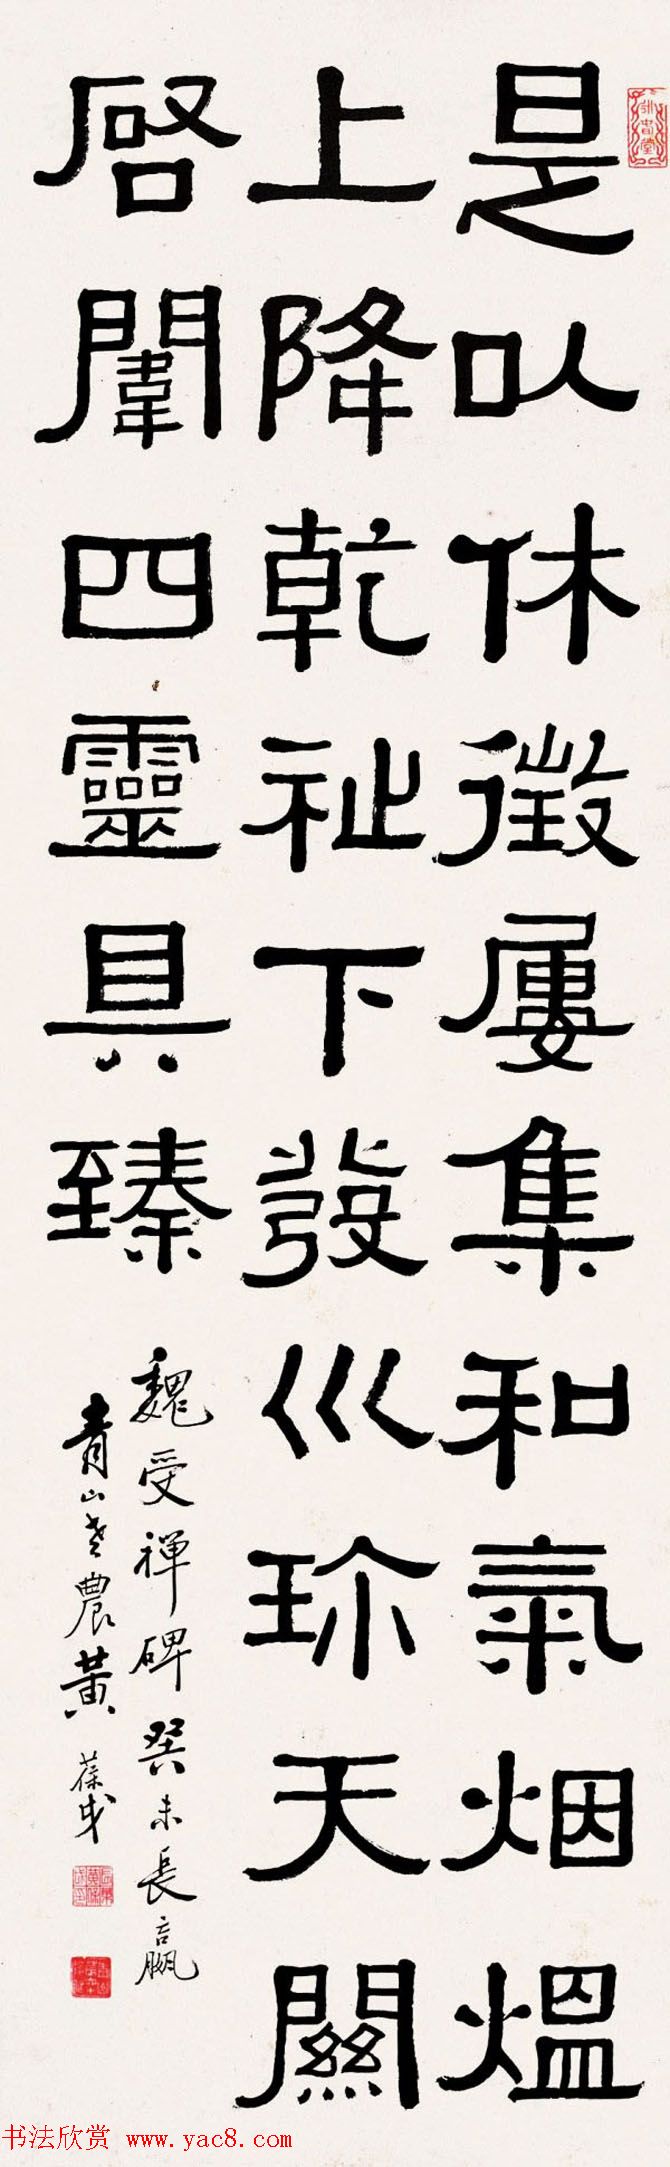 是以休徵屢集和氣烟熅
上降乾祉下發巛珎天關
啓闈四靈具臻
魏受禪碑癸未長嬴
青山老農黃葆戉
书法欣赏 www.yac8.com